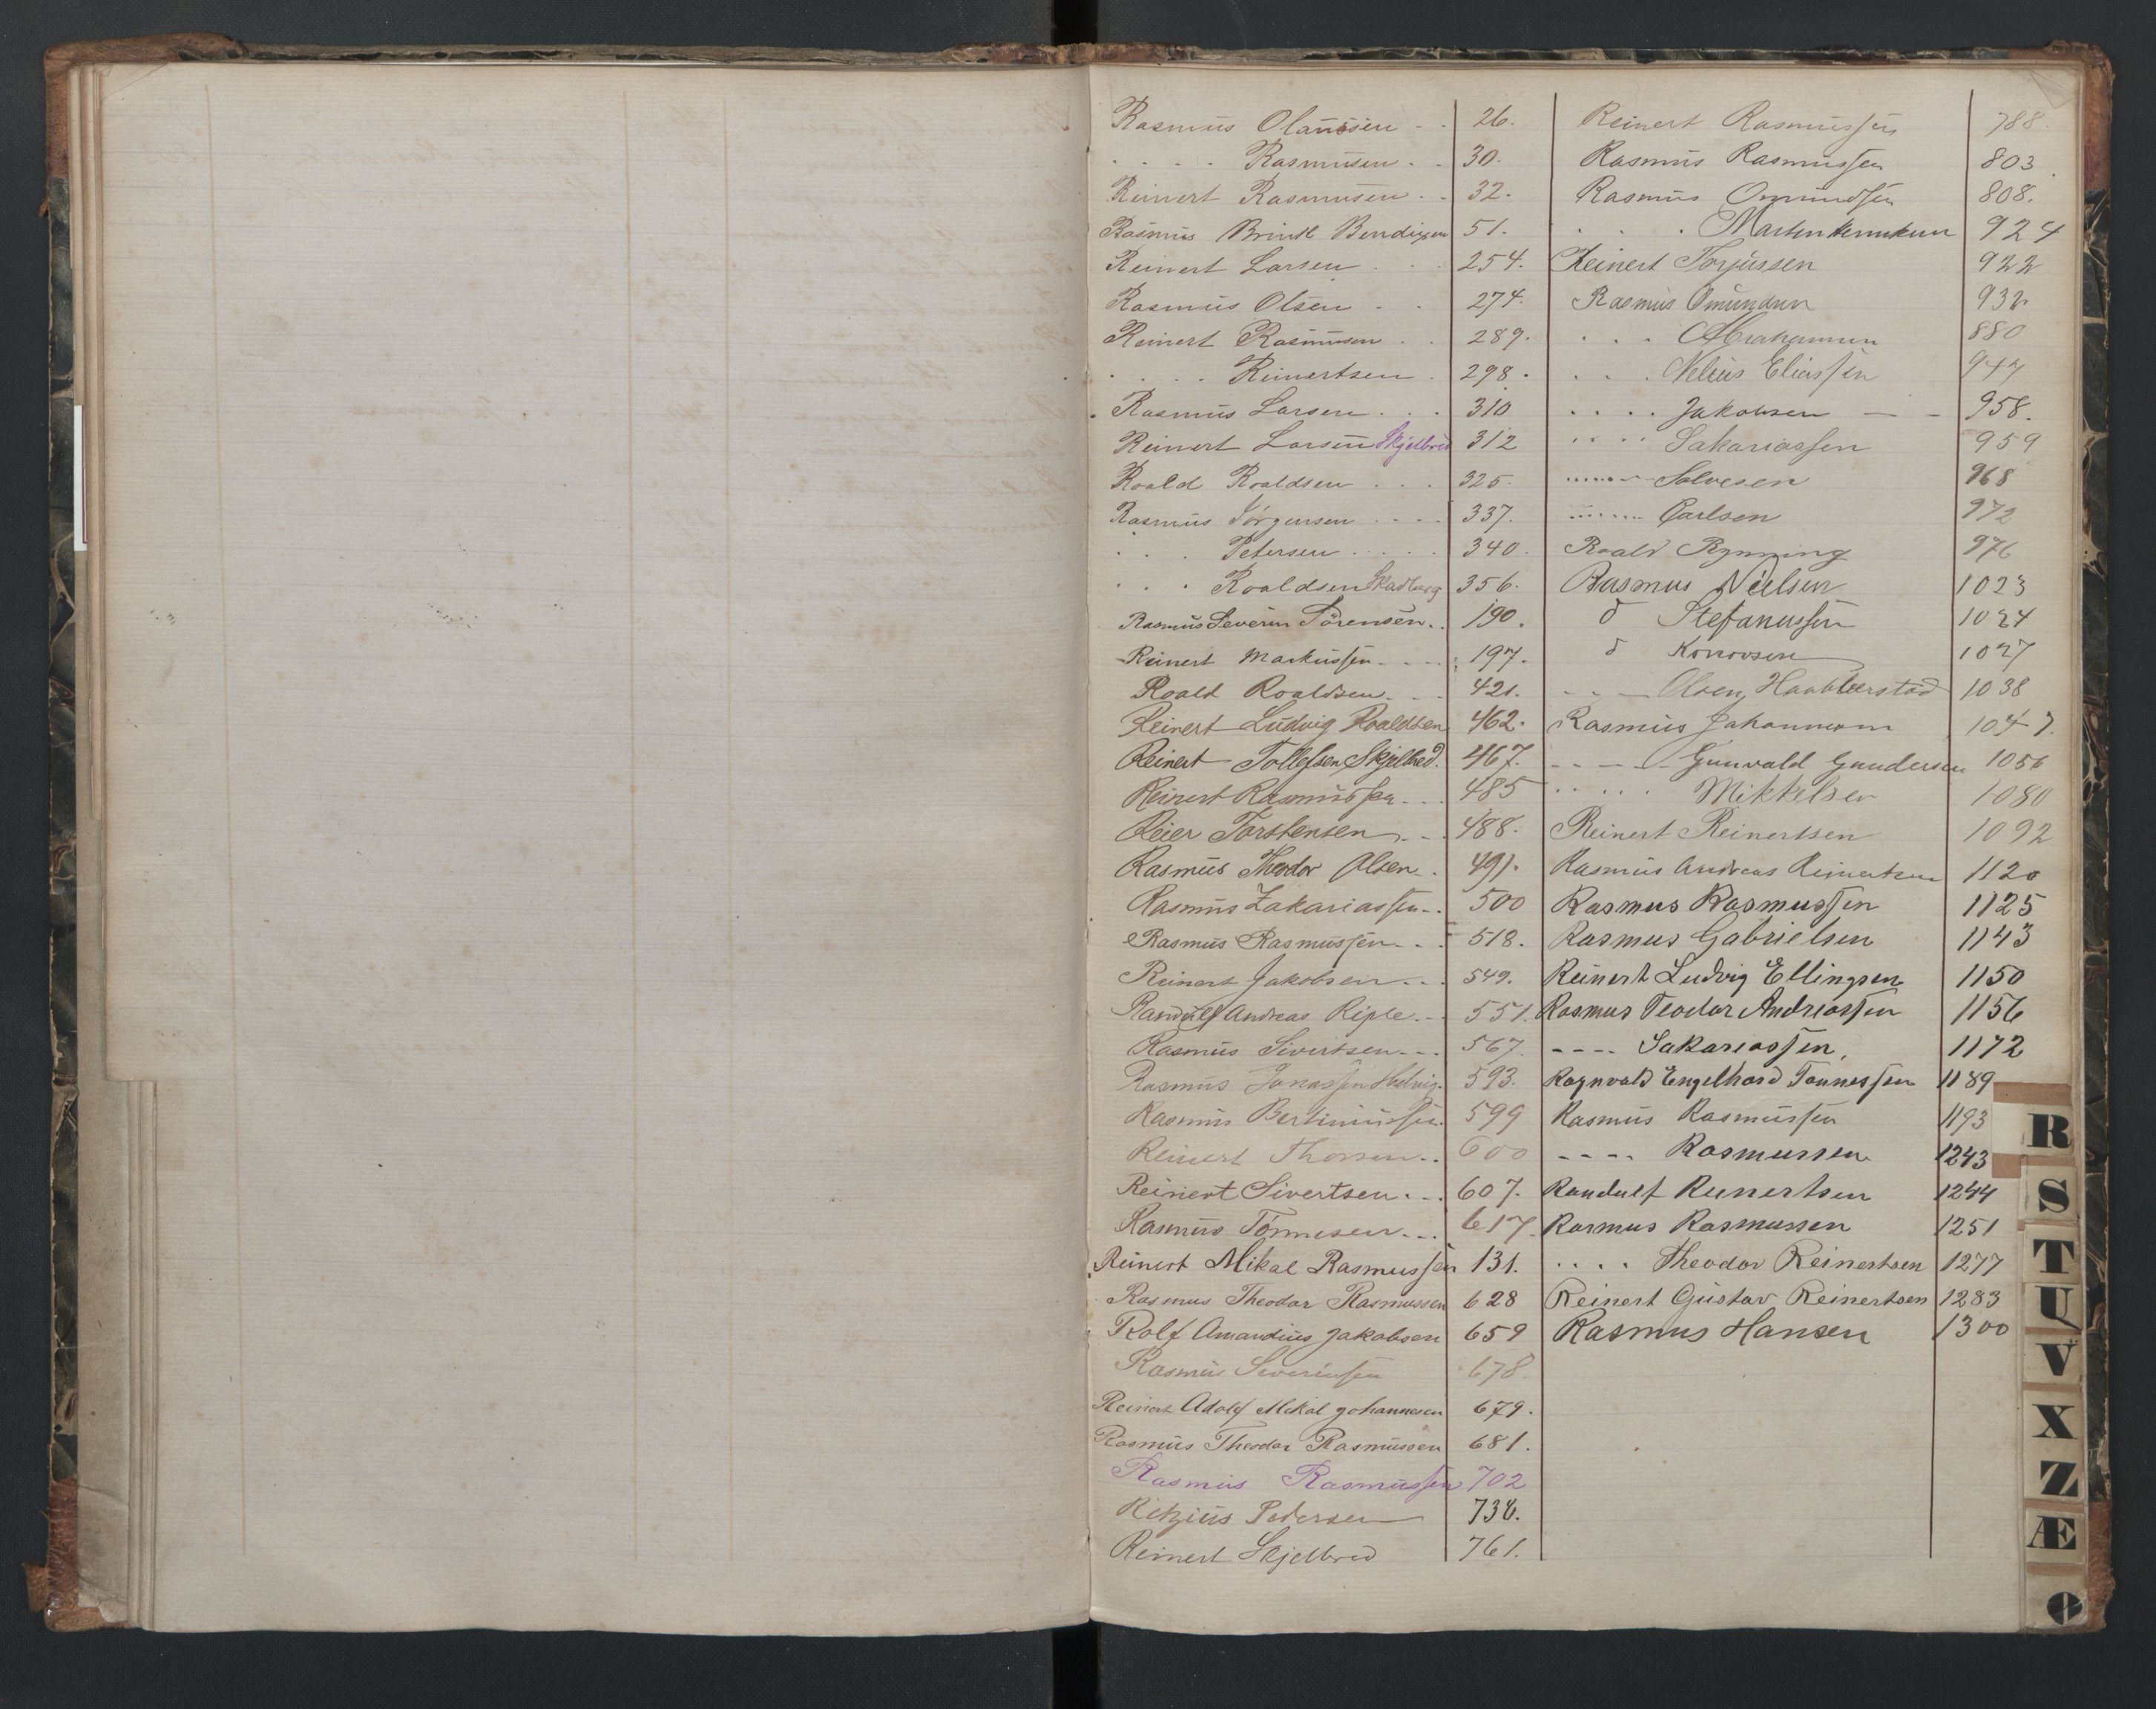 Rasmus Olaussen - - 26.
. . . . Rasmusen. . 30.
Reinert Rasmusen. . 32.
Rasmus Brinth Bendixen 51.
Reinert Larsen . . . 254.
Rasmus Olsen - - 274.
Reinert Rasmusen . . 289.
. . . . Reinertsen . 298.
Rasmus Larsen . . . 310
Reinert Larsen Skjelbred 312
Roald Roaldsen . . . 325.
Rasmus Jörgensen . . . . 337.
. . . Petersen . . . . . 340.
. . . Roaldsen Skadberg 356.
Rasmus Severin Sörensen. . 190.
Reinert Markussen. - - - 197.
Roald Roaldsen. . . 421.
Reinert Ludvig Roaldsen 462.
Reinert Tollefsen Skjelbred. 467.
Reinert Rasmussen. . . 485
Reier Torstensen . - 488.
Rasmus Theodor Olsen. . 491.
Rasmus Zakariassen. . 500
Rasmus Rasmussen. . . 518.
Reinert Jakobsen. . . 549.
Randulf Andreas Riple. . 551.
Rasmus Sivertsen. . . 567.
Rasmus Jonassen 593.
Rasmus Bertinussen. 599
Reinert Thorsen. . 600
Reinert Sivertsen. . . 607.
Rasmus Tönnesen. . . 617.
Reinert Mikal Rasmussen 131.
Rasmus Theodor Rasmussen 628
Rolf Amandius Jakobsen 659
Rasmus Severinsen 678.
Reinert Adolf Mikal Johannesen 679.
Rasmus Theodor Rasmussen 681.
Rasmus Rasmussen 702
Retzius Pedersen 736.
Reinert Skjelbred 761.
Reinert Rasmussen 788.
Rasmus Rasmussen 803.
Rasmus Omundsen 808.
. . . . 924
Reinert Torjussen 922
Rasmus Omundsen 932
. . . Abrahamsen 880
. . . Nelius Eliassen 947
. . . . Jakobsen - - 958.
. . . . Sakariassen 959
. . . . . Salvesen 968
. . . . . Carlsen 972
Roald Rynning 976
Rasmus Nielsen 1023
d Stefanussen 1024
d 1027
- - - Olsen, Haabberstad 1038
Rasmus Johannesen 1047.
- - - - Gunvald Gundersen 1056
. . . . . Mikkelsen 1080
Reinert Reinertsen 1092
Rasmus Andreas Reinertsen 1120
Rasmus Rasmussen 1125
Rasmus Gabrielsen 1143
Reinert Ludvig Ellingsen 1150
Rasmus Teodor Andreassen 1156
- - - - Sakariassen, 1172
Ragnvald Engelhard Tönnessen 1189
Rasmus Rasmussen 1193
- - - - Rasmussen 1243
Randulf Reinertsen 1244
Rasmus Rasmussen 1251
. . . . Theodor Reinertsen 1277
Reinert Gustav Reinertsen 1283
Rasmus Hansen 1300
R
S
T
U
V
X
Z
Æ
Ø